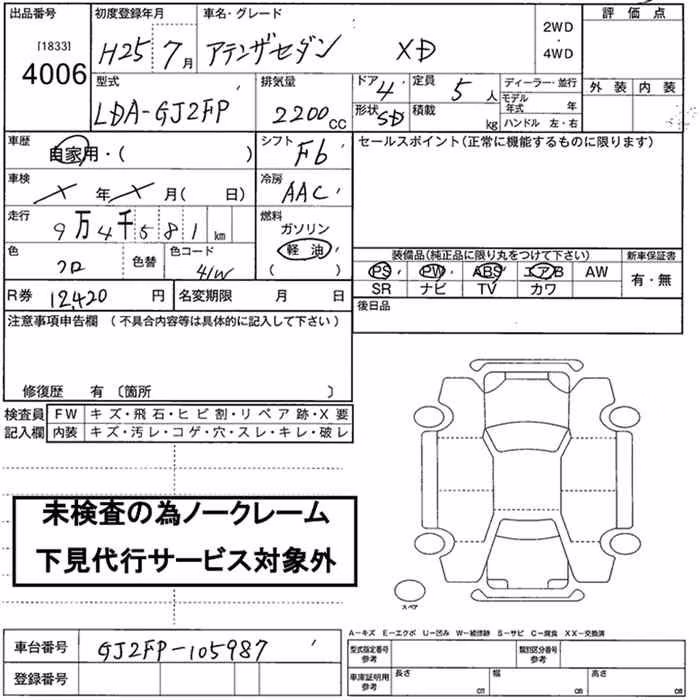 出品番号 初度登録年月 車名・グレード 2WD ・ 4WD 評価点
[1833] 4006 H25 7月 アテンザセダン XD
外装 内装
型式 排気量 ドア 定員 ディーラー・並行
LDA-GJ2FP 2200cc 4 5人 モデル年式 年
形状 SD 積載 kg ハンドル 左・右
車歴 自家用・( ) シフト F6 セールスポイント(正常に機能するものに限ります)
車検 X年X月( 日) 冷房 AAC
走行 9万4千581km 燃料 ガソリン 軽油 ( )
色 クロ 色替 色コード 41W
装備品(純正品に限り丸をつけて下さい) 新車保証書
PS PW ABS エアB AW 有・無
SR ナビ TV カワ
R券 12,420円 名変期限 月 日 後日品
注意事項申告欄 (不具合内容等は具体的に記入して下さい)
修復歴 有 〔箇所 〕
検査員 FW キズ・飛石・ヒビ割・リペア跡・X要
記入欄 内装 キズ・汚レ・コゲ・穴・スレ・キレ・破レ
未検査の為ノークレーム
下見代行サービス対象外
スペア
A-キズ E-エクボ U-凹み W-補修跡 S-サビ C-腐食 XX-交換済
車台番号 GJ2FP-105987
型式指定番号 参考 類別区分番号 参考
登録番号
車庫証明用 参考 長さ cm 幅 cm 高さ cm